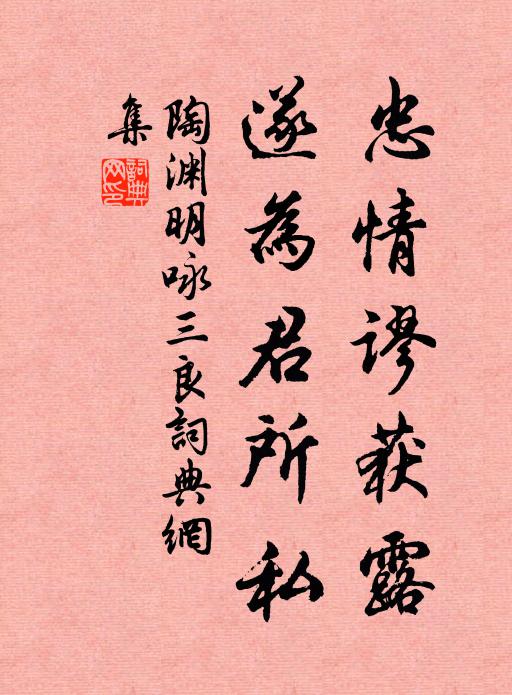 忠情谬获露
遂為君所私
陶渊明咏三良詞典網
集
詞典网印